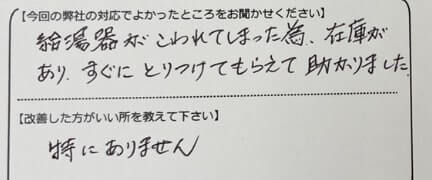 【今回の弊社の対応でよかったところをお聞かせください】
給湯器がこわれてしまった為、在庫が
あり、すぐにとりつけてもらえて助かりました
【改善した方がいい所を教えて下さい】
特にありません